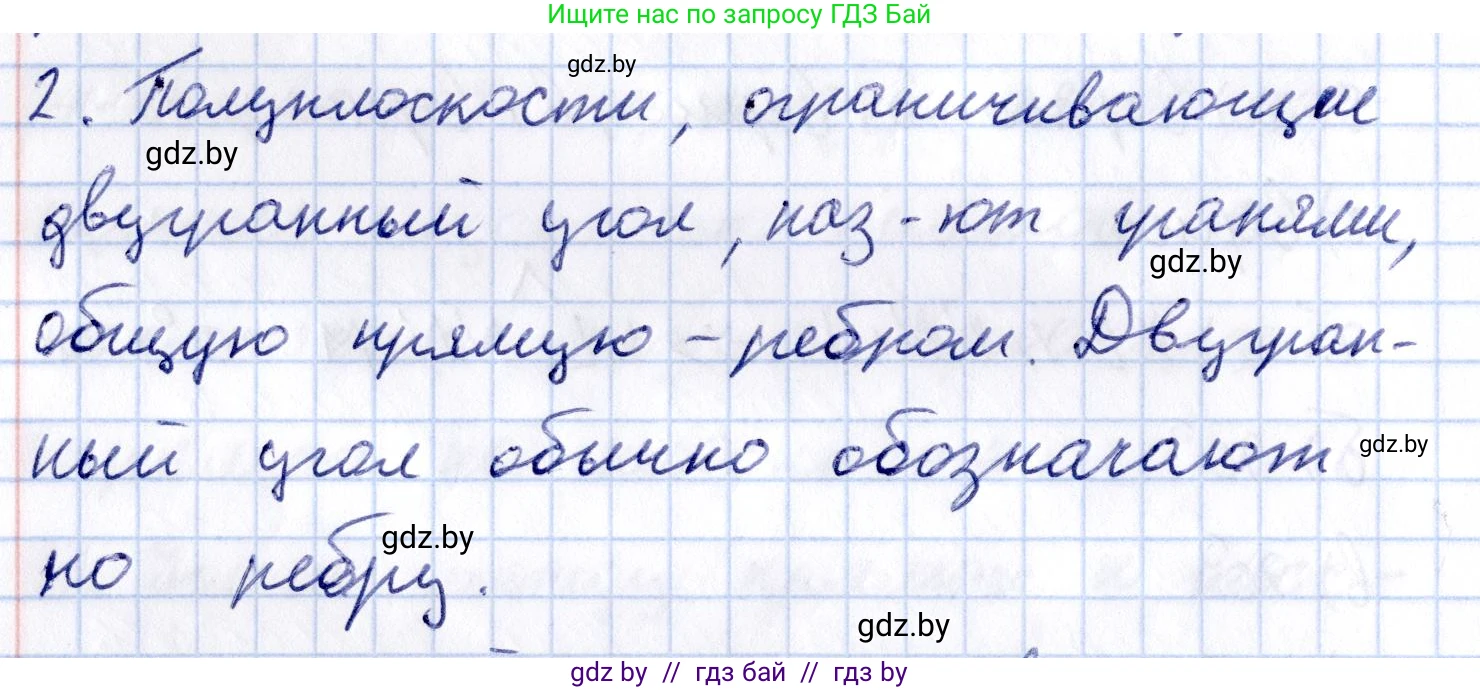 Ищите нас по запросу ГДЗ Бай
gdz.by
2. Полуплоскости, ограничивающие
gdz.by
двугранный угол, наз-ют гранями,
gdz.by
общую прямую – ребром. Двугран-
ный угол обычно обозначают
gdz.by
gdz.by
по ребру.
gdz.by
gdz by // гдз бай // гдз by